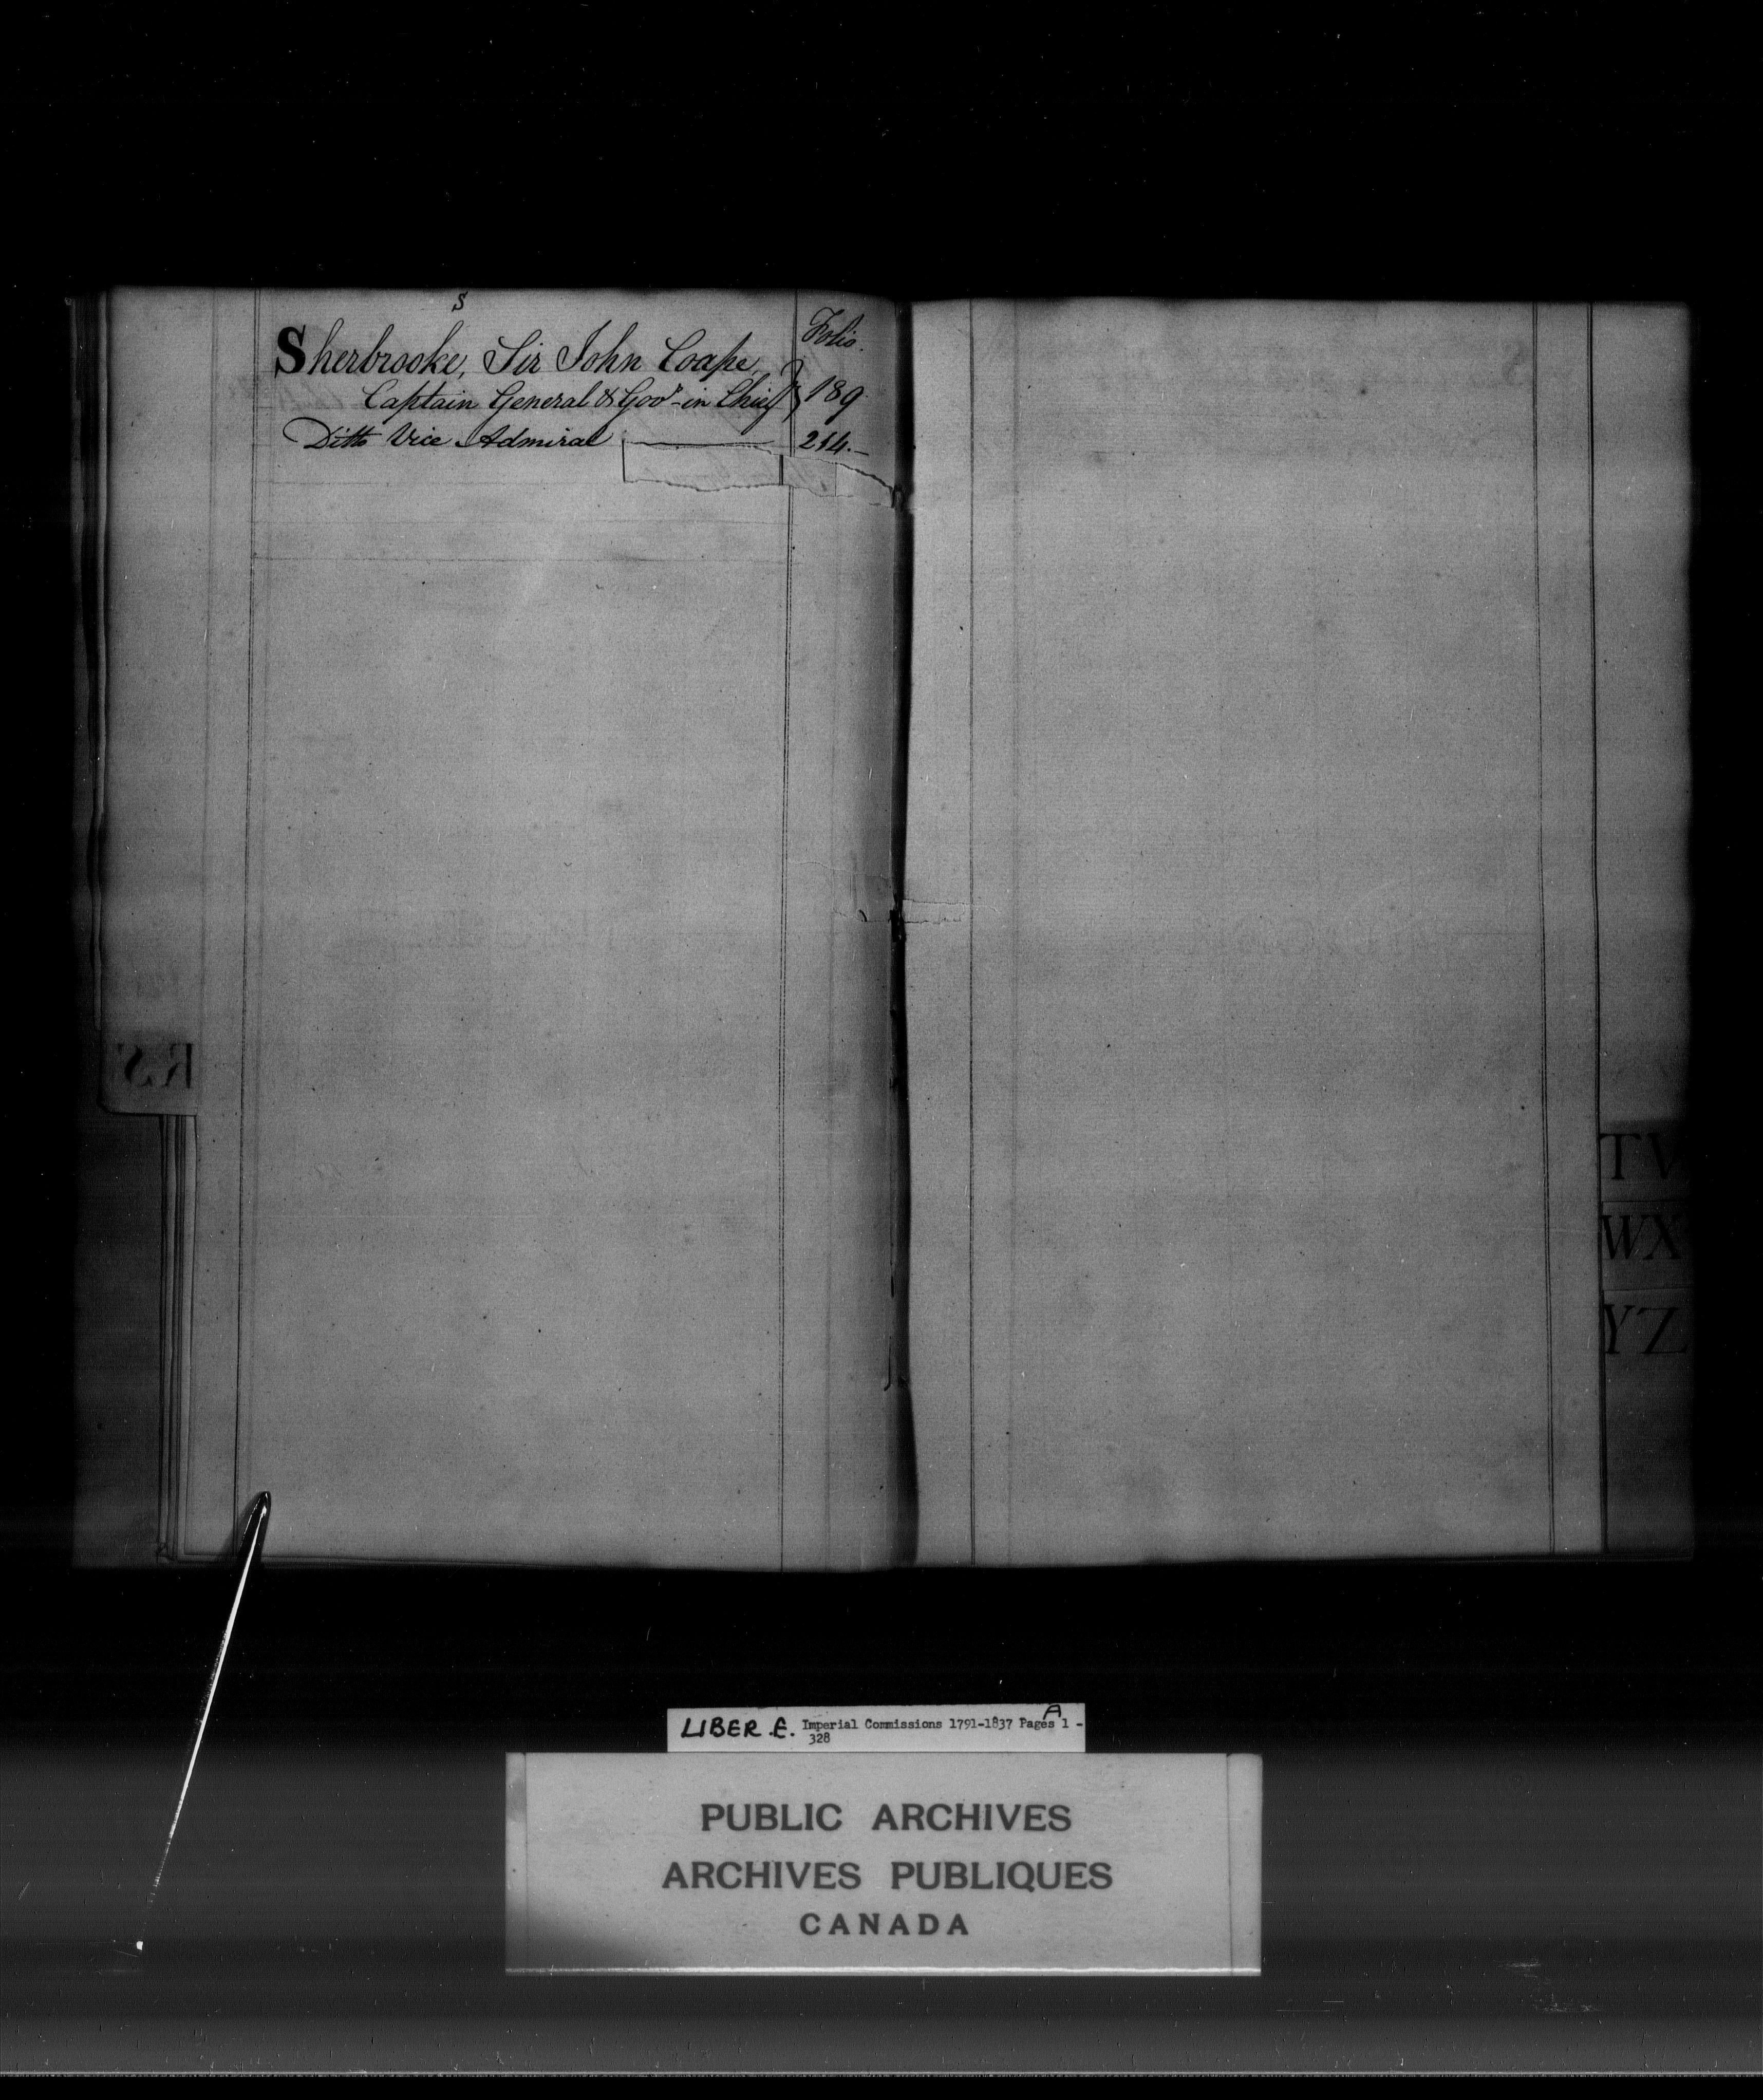 S
Folio.
Sherbrooke, Sir John Coape,
Captain General & Govr in Chief } 189
Ditto Vice Admiral 214.-
RS
TV
WX
YZ
LIBER E. Imperial Commissions 1791-1837 Pages A 1 -
328
PUBLIC ARCHIVES
ARCHIVES PUBLIQUES
CANADA